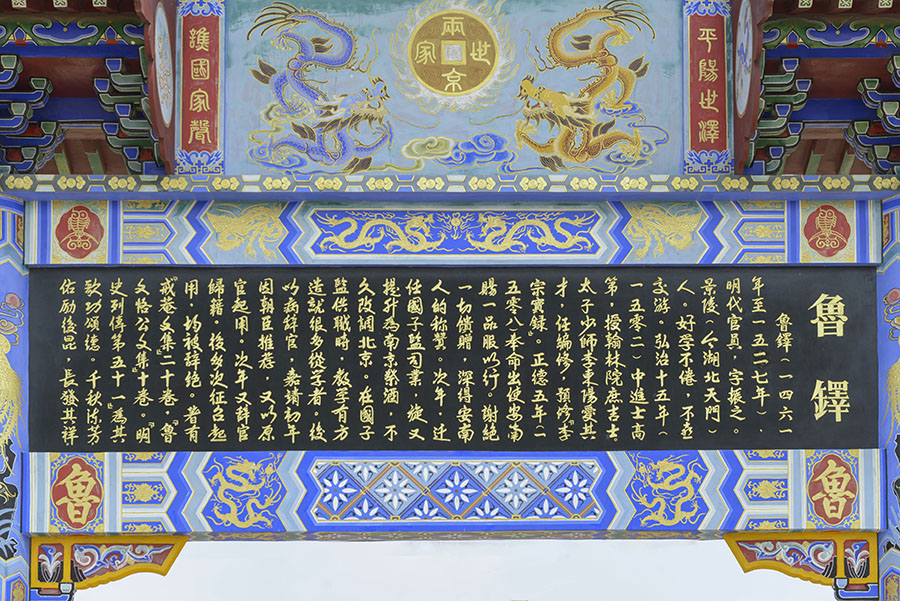 平陽世澤
國家聲
兩京世家
魯鐸
魯鐸(一四六一
年至一五二七年),
明代官員,字振之。
景陵(今湖北天門)
人。好學不倦,不妄
交游。弘治十五年(
一五〇二)中進士高
第,授翰林院庶吉士
太子少師李東陽愛其
才,任編修,預修《孝
宗實錄》。正德五年(一
五〇八)奉命出使安南
賜一品服以行。謝絕
一切饋贈,深得安南
人的稱贊。次年,迁
任國子監司業,旋又
提升為南京祭酒,不
久改調北京。在國子
監供職時,教學有方
造就很多從學者。後
以病辭官,嘉靖初年
因朝臣推荐,又以原
官起用。次年又辭官
歸籍。後多次征召起
用,均被辭絕。著有
《戒菴文集》二十卷,《魯
文恪公文集》十卷。《明
史列傳第五十一》為其
歌功頌德。千秋流芳
佑勵後昆,長發其祥
魯
魯